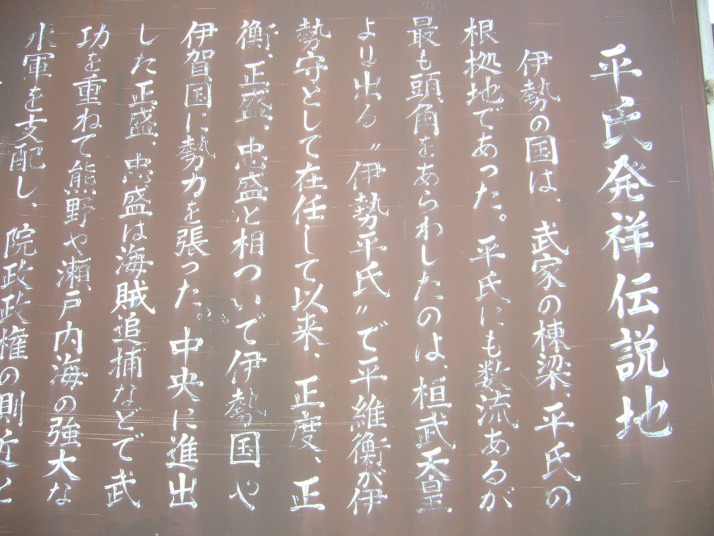 平氏発祥伝説地
伊勢の国は、武家の棟梁、平氏の
根拠地であった。平氏にも数流あるが
最も頭角をあらわしたのは、桓武天皇
より出る〝伊勢平氏〟で平維衡が伊
勢守として在任して以来、正度、正
衡、正盛、忠盛と相ついで伊勢国や
伊賀国に勢力を張った。中央に進出
した正盛、忠盛は海賊追捕などで武
功を重ねて熊野や瀬戸内海の強大な
水軍を支配し、院政政権の則近と